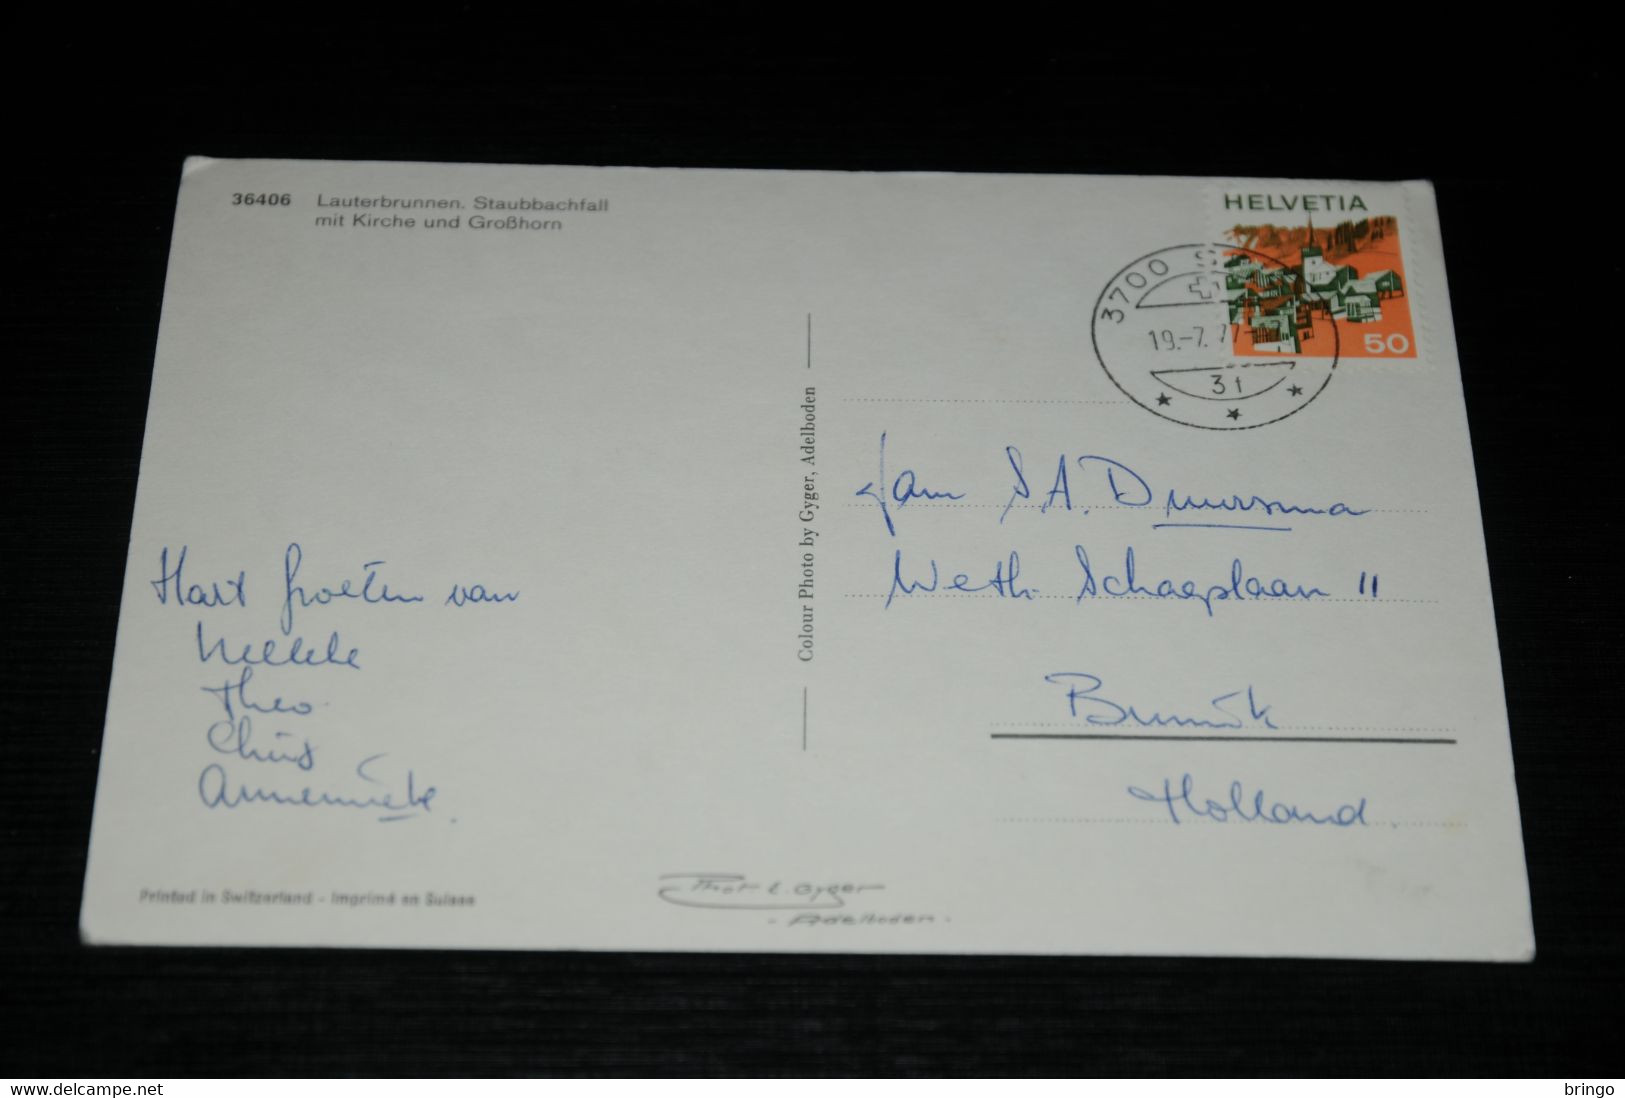 36406 Lauterbrunnen. Staubbachfall
mit Kirche und Großhorn
HELVETIA
50
3700 S
19.-7. 77-
3 1
Colour Photo by Gyger, Adelboden
Fam S.A. Duursma
Weth. Schaaplaan 11
Bunnik
Holland.
Hart. groeten van
Nelleke
Theo
Chris
Annemieke.
Printed in Switzerland - Imprimé en Suisse
Phot E. Gyger
- Adelboden -
www.delcampe.net
bringo